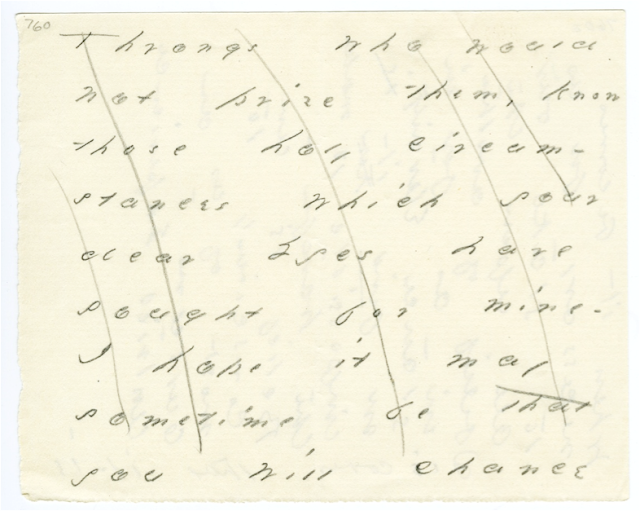 760
Throngs who would
not prize them, know
those holy circum-
stances which your
dear Eyes have
sought for mine.
I hope it may
sometime be that
you will chance